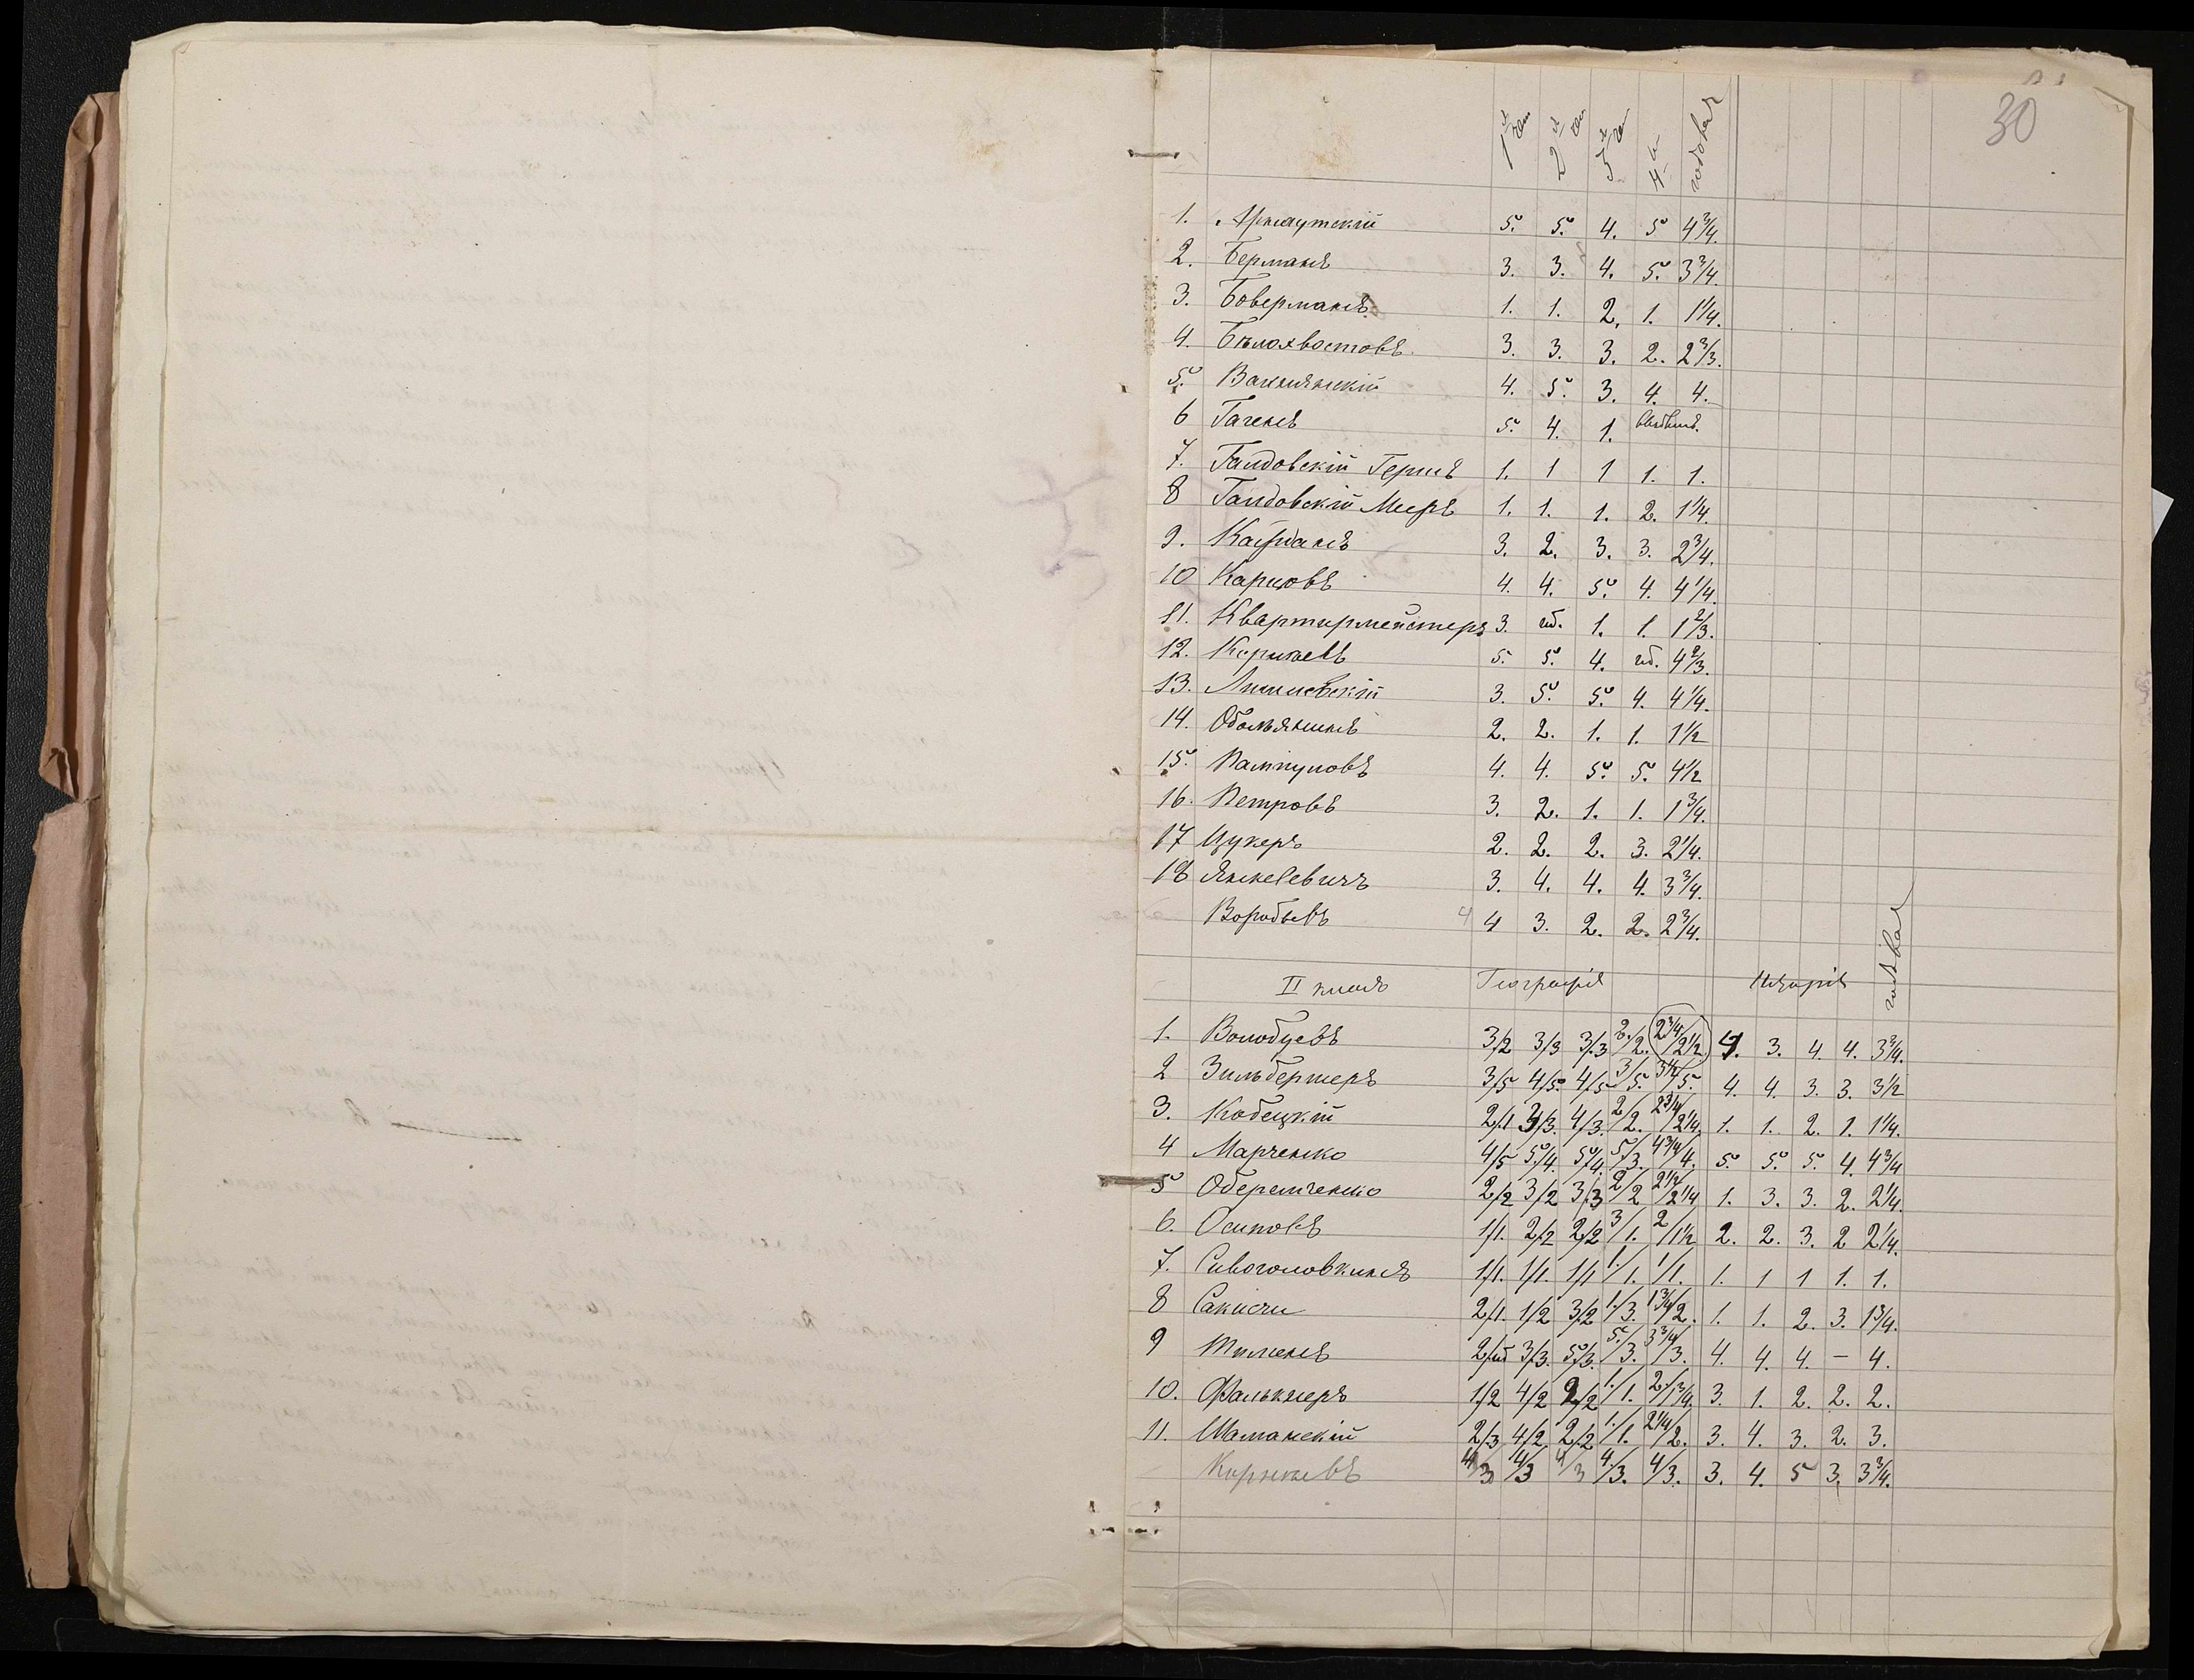 30
1я чет 2я чет 3я че 4я годовая
1. Арнаутскій 5. 5. 4. 5 4 3/4.
2. Берманъ 3. 3. 4. 5. 3 3/4.
3. Боверманъ. 1. 1. 2. 1. 1 1/4.
4. Бѣлохвостовъ. 3. 3. 3. 2. 2 3/3.
5. 4. 5. 3. 4. 4.
6 Гагенъ 5. 4. 1. выбылъ.
7. Галдовскій Гершъ 1. 1 1 1. 1.
8 Галдовскій Мееръ 1. 1. 1. 2. 1 1/4.
9. Кафманъ 3. 2. 3. 3. 2 3/4.
10 Карповъ 4. 4. 5. 4. 4 1/4.
11. Квартирмейстеръ 3. нб. 1. 1. 1 2/3.
12. Корнѣевъ 5. 5. 4. нб. 4 2/3.
13. 3. 5. 5. 4. 4 1/4.
14. Обольянинъ 2. 2. 1. 1. 1 1/2
15. 4. 4. 5. 5. 4 1/2
16. Петровъ 3. 2. 1. 1. 1 3/4.
17 Цукеръ 2. 2. 2. 3. 2 1/4.
18 Янкелевичъ 3. 4. 4. 4. 3 3/4.
Воробьевъ 4 4 3. 2. 2. 2 3/4.
II классъ Географія Исторія годовая
1. Волобуевъ 3/2 3/3 3/3 2./2. 2 3/4/2 1/2 4. 3. 4. 4. 3 3/4.
2 Зильберперъ 3/5 4/5. 4/5 3/5. 3 1/2/5. 4. 4. 3. 3. 3 1/2
3. Кобецкій 2/1 3/3. 4/3. 2/2. 2 3/4/2 1/4. 1. 1. 2. 1. 1 1/4.
4 Марченко 4/5 5/4. 5/4. 5/3. 4 3/4/4. 5. 5. 5. 4. 4 3/4
5 Оберемченко 2/2 3/2 3/3 2/2 2 1/2/2 1/4 1. 3. 3. 2. 2 1/4.
6. Осиповъ 1/1. 2/2 2/2 3/1. 2/1 1/2 2. 2. 3. 2 2 1/4.
7. Сивоголовкинъ 1/1. 1/1. 1/1 1./1. 1/1. 1. 1 1 1. 1.
8 2/1. 1/2 3/2 1./3. 1 3/4/2. 1. 1. 2. 3. 1 3/4.
9 2/нб 3/3. 5/3. 5./3. 3 3/4/3. 4. 4. 4. — 4.
10. Фалькнеръ 1/2 4/2 2/2 1./1. 2/1 3/4. 3. 1. 2. 2. 2.
11. Шаманскій 2/3 4/2 2/2 1./1. 2 1/4/2. 3. 4. 3. 2. 3.
Корнѣевъ 4/3 4/3 4/3 4./3. 4/3. 3. 4. 5 3. 3 3/4.